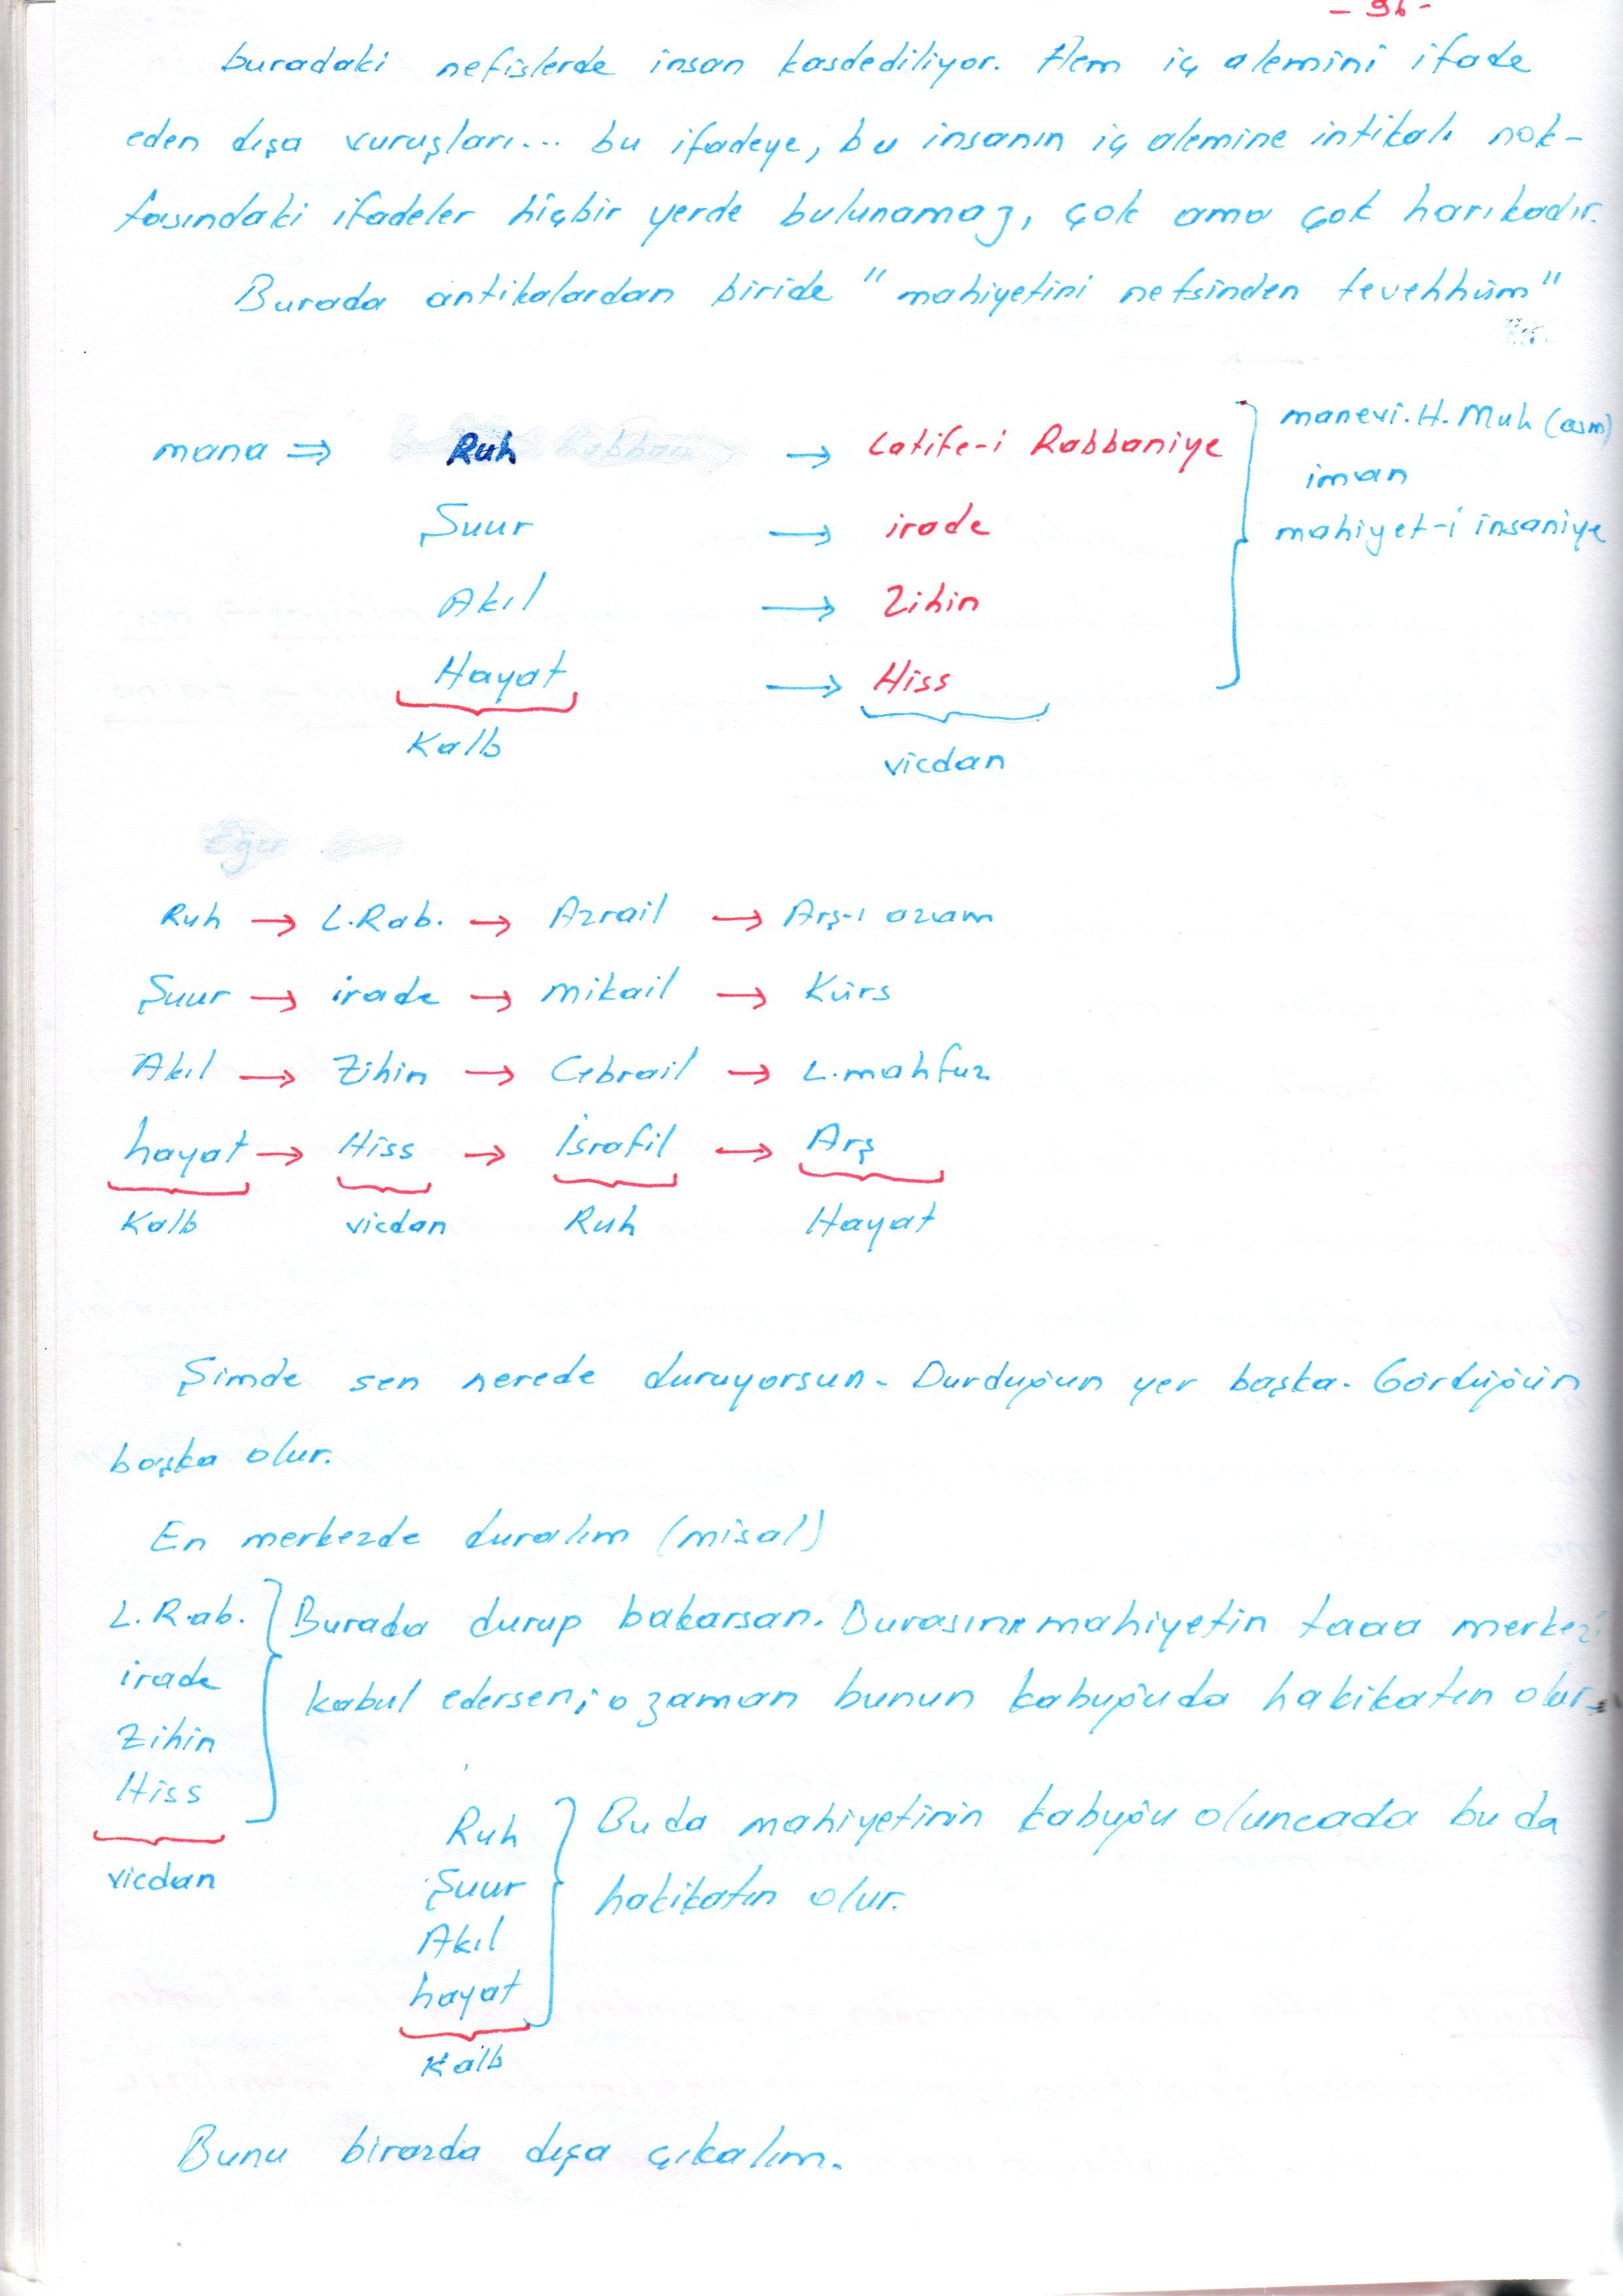 - 96 -
buradaki nefislerde insan kasdediliyor. Hem iç alemini ifade
eden dışa vuruşları... bu ifadeye, bu insanın iç alemine intikalı nok-
tasındaki ifadeler hiçbir yerde bulunamaz, çok ama çok harıkadır.
Burada antikalardan biride " mahiyetini nefsinden tevehhüm"
mana ⇒ Ruh → Latife-i Rabbaniye
Şuur → irade
Akıl → Zihin
Hayat → Hiss
Kalb vicdan
manevi. H. Muh (asm)
iman
mahiyet-i insaniye
Eğer
Ruh → L.Rab. → Azrail → Arş-ı azam
Şuur → irade → Mikail → Kürs
Akıl → Zihin → Cebrail → L.mahfuz
hayat → Hiss → İsrafil → Arş
Kalb vicdan Ruh Hayat
Şimde sen nerede duruyorsun. Durduğun yer başka. Gördüğün
başka olur.
En merkezde duralım (misal)
L. Rab.
irade
Zihin
Hiss
vicdan
Burada durup bakarsan. Burasını mahiyetin taaa merkezi
kabul edersen; o zaman bunun kabuğuda hakikatın olur.
Ruh
Şuur
Akıl
hayat
Kalb
Buda mahiyetinin kabuğu oluncada bu da
hakikatın olur.
Bunu birazda dışa çıkalım.